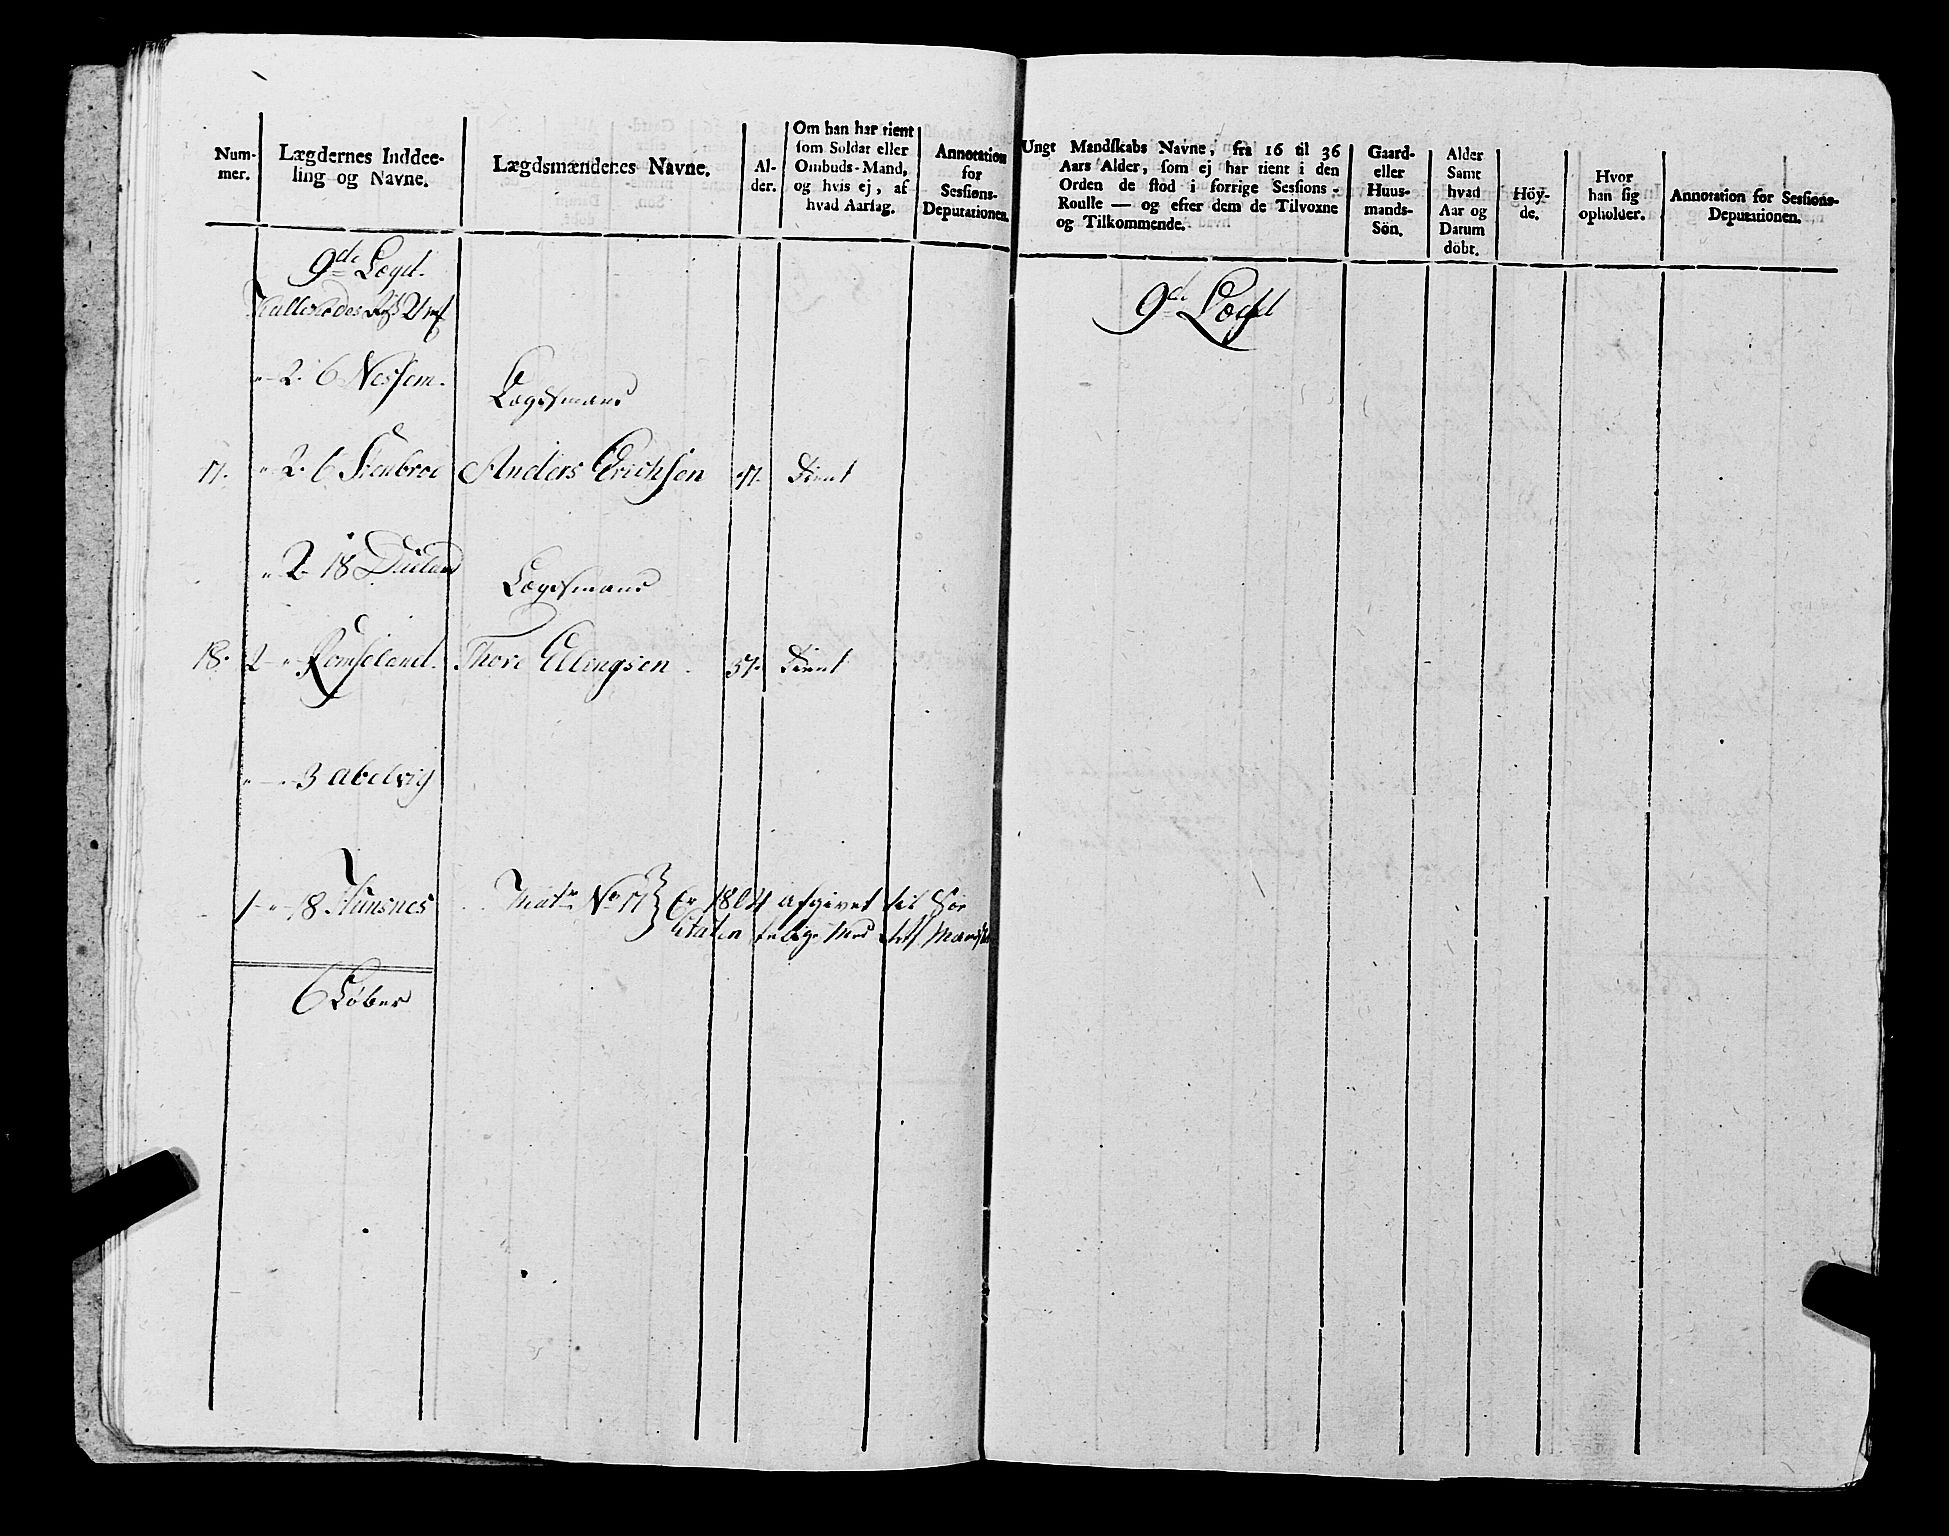 Num-
mer.
Lægdernes Inddee-
ling og Navne.
Lægdsmændenes Navne.
Al-
der.
Om han har tient
som Soldat eller
Ombuds-Mand,
og hvis ej, af
hvad Aarsag.
Annotation
for
Sessions-
Deputationen.
9de Lægd.
2. 6 Nessem.
Lægdsmand
17. 2. 6 Steenbroe Anders Erichsen 57. Tient
2 18 Dueland
Lægdsmand
18. 2 Romseland. Thore Ellingsen 57. Tient
3 Abelvig
1 18 Hunsnes Matr No 17 Er 1804 afgivet til Søe
Etaten
6 Løber
Ungt Mandskabs Navne, fra 16 til 36
Aars Alder, som ej har tient i den
Orden de stod i forrige Sessions-
Roulle — og efter dem de Tilvoxne
og Tilkommende.
Gaard-
eller
Huus-
mands-
Sön.
Alder
Samt
hvad
Aar og
Datum
döbt.
Höy-
de.
Hvor
han sig
opholder.
Annotation for Sessions-
Deputationen.
9de Lægd